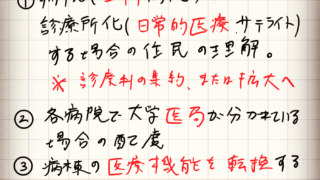 ①
診療所化(日常的医療、サテライト)
する場合の住民の理解。
※ 診療科の集約、または拡大へ
② 各病院で大学医局が分かれている
場合の配慮
③ 病棟の医療機能を転換する